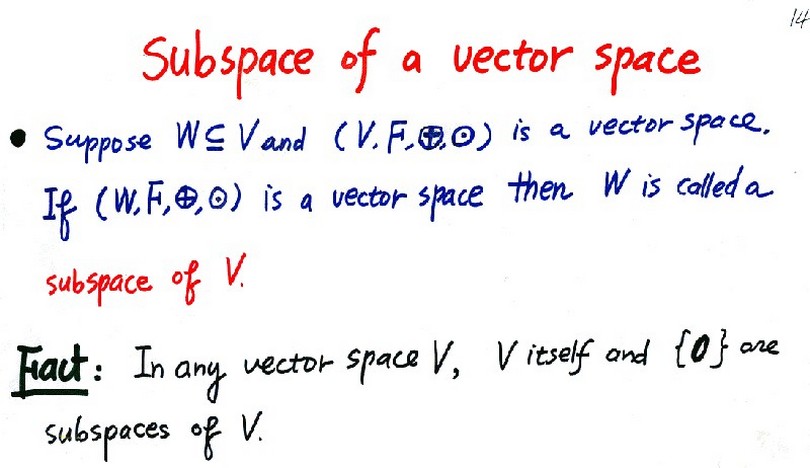 14
Subspace of a vector space
• Suppose W ⊆ V and (V, F, ⊕, ⊙) is a vector space.
If (W, F, ⊕, ⊙) is a vector space then W is called a
subspace of V.
Fact: In any vector space V, V itself and {0} are
subspaces of V.